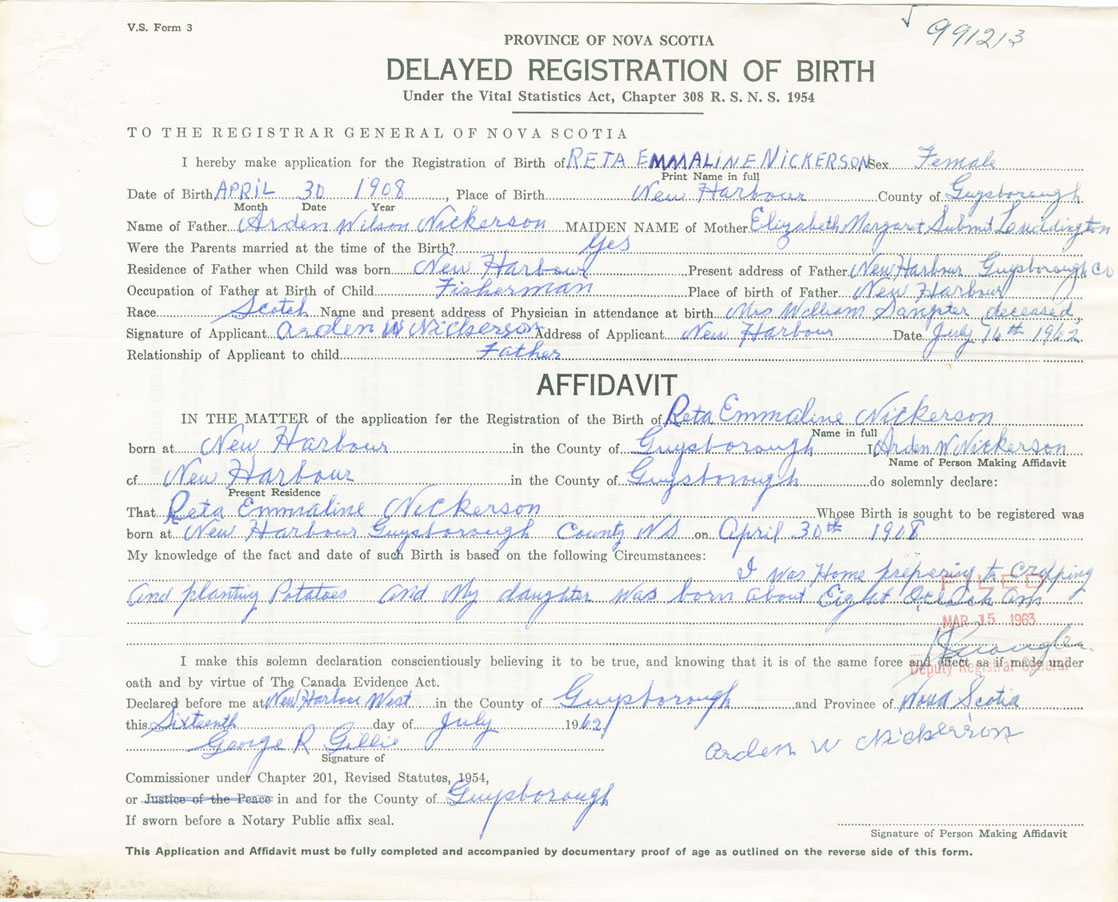 V.S. Form 3
991213
PROVINCE OF NOVA SCOTIA
DELAYED REGISTRATION OF BIRTH
Under the Vital Statistics Act, Chapter 308 R. S. N. S. 1954
TO THE REGISTRAR GENERAL OF NOVA SCOTIA
I hereby make application for the Registration of Birth of RETA EMMALINE NICKERSON Sex Female
Print Name in full
Date of Birth APRIL 30 1908, Place of Birth New Harbour County of Guysborough
Month Date Year
Name of Father Arden Wilson Nickerson MAIDEN NAME of Mother Elizabeth Margaret Submit
Were the Parents married at the time of the Birth? Yes
Residence of Father when Child was born New Harbour Present address of Father New Harbour Guysborough Co
Occupation of Father at Birth of Child Fisherman Place of birth of Father New Harbour
Race Scotch Name and present address of Physician in attendance at birth Mrs William Sangster deceased
Signature of Applicant Arden W Nickerson Address of Applicant New Harbour Date July 16th 1962
Relationship of Applicant to child Father
AFFIDAVIT
IN THE MATTER of the application for the Registration of the Birth of Reta Emmaline Nickerson
Name in full
born at New Harbour in the County of Guysborough I Arden W Nickerson
Name of Person Making Affidavit
of New Harbour in the County of Guysborough do solemnly declare:
Present Residence
That Reta Emmaline Nickerson Whose Birth is sought to be registered was
born at New Harbour Guysborough County NS on April 30th 1908
My knowledge of the fact and date of such Birth is based on the following Circumstances:
I was Home preparing to Cropping
and planting Potatoes and My daughter was born about Eight Oclock am
FILED
MAR 15 1963
Deputy Registrar General
I make this solemn declaration conscientiously believing it to be true, and knowing that it is of the same force and effect as if made under
oath and by virtue of The Canada Evidence Act.
Declared before me at New Harbour West in the County of Guysborough and Province of Nova Scotia
this Sixteenth day of July 1962
George R Gillie
Arden W Nickerson
Signature of
Commissioner under Chapter 201, Revised Statutes, 1954,
or Justice of the Peace in and for the County of Guysborough
If sworn before a Notary Public affix seal.
Signature of Person Making Affidavit
This Application and Affidavit must be fully completed and accompanied by documentary proof of age as outlined on the reverse side of this form.